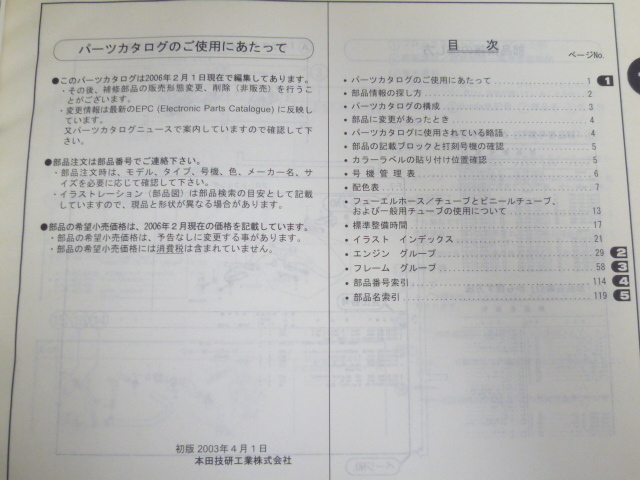 パーツカタログのご使用にあたって
●このパーツカタログは2006年2月1日現在で編集してあります。
・その後、補修部品の販売形態変更、削除（非販売）を行うこ
とがございます。
・変更情報は最新のEPC (Electronic Parts Catalogue) に反映し
ています。
又パーツカタログニュースで案内していますので確認して下
さい。
●部品注文は部品番号でご連絡下さい。
・部品注文時は、モデル、タイプ、号機、色、メーカー名、サ
イズを必要に応じて確認して下さい。
・イラストレーション（部品図）は部品検索の目安として記載
していますので、現品と形状が異なる場合があります。
●部品の希望小売価格は、2006年2月現在の価格を記載しています。
・部品の希望小売価格は、予告なしに変更する事があります。
・部品の希望小売価格には消費税は含まれていません。
初版 2003年4月1日
本田技研工業株式会社
目 次
ページNo.
・パーツカタログのご使用にあたって 1 1
・部品情報の探し方 2
・パーツカタログの構成 3
・部品に変更があったとき 4
・パーツカタログに使用されている略語 4
・部品の記載ブロックと打刻号機の確認 5
・カラーラベルの貼り付け位置確認 5
・号 機 管 理 表 6
・配色表 7
・フューエルホース／チューブとビニールチューブ、
および一般用チューブの使用について 13
・標準整備時間 17
・イラスト インデックス 21
・エンジン グループ 29 2
・フレーム グループ 58 3
・部品番号索引 114 4
・部品名索引 119 5